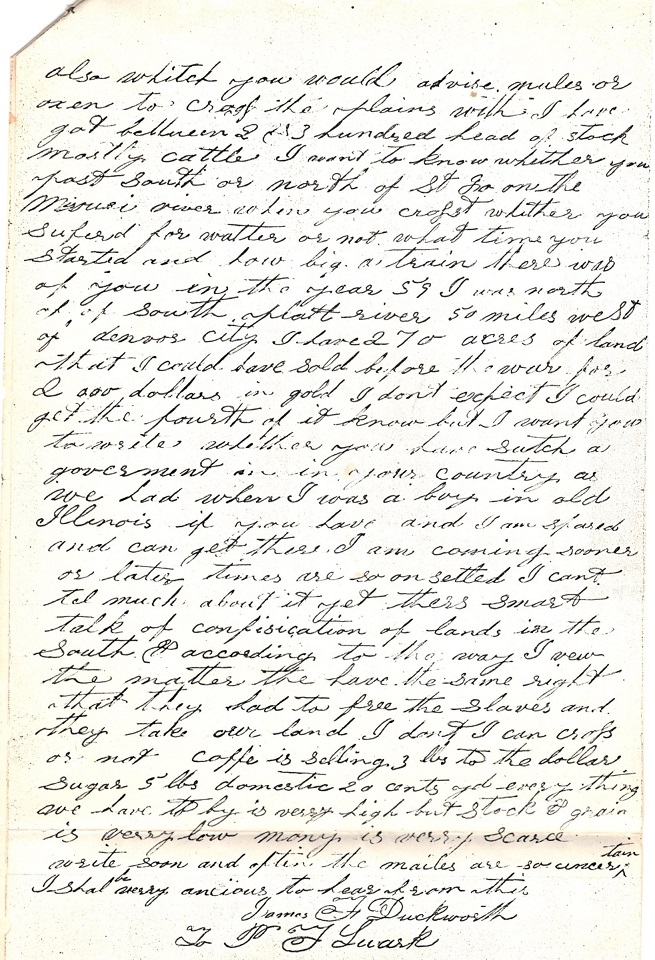 also whitch you would advise mules or
oxen to cross the plains with I have
got between 2 & 3 hundred head of stock
mostly cattle I want to know whether you
past South or north of St Jo on the
Misouei river when you crosst whether you
Superd for watter or not what time you
Started and how big a train there was
of you in the year 59 I was north
of South platt river 50 miles west
of denvor city I have 270 acres of land
that I could have sold before the war for
2 000 dollars in gold I dont expect I could
get the fourth of it know but I want you
to write whether you have sutch a
goverment in in your country as
we had when I was a boy in old
Illinois if you have and I am spared
and can get there I am coming sooner
or later times are so onsetled I cant
tel much about it yet thers smart
talk of confisication of lands in the
South & according to the way I vew
the matter the have the same right
that they had to free the slaves and
they take our land I dont I can cross
or not coffe is selling 3 lbs to the dollar
Sugar 5 lbs domestic 20 cents yd every thing
we have to by is verry high but stock & grain
is verry low mony is verry Scarce
write soon and oftin the mailes are so uncertain
I shal be verry ancious to hear from this
James F Duckworth
To P F Luark